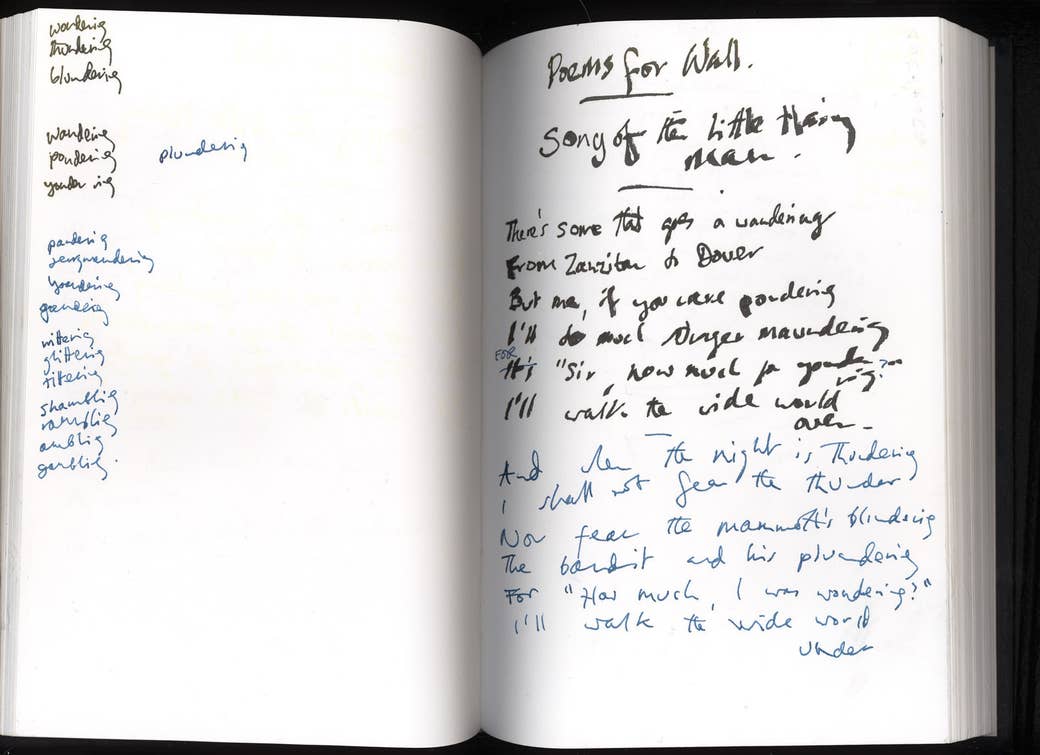 wondering
thundering
blundering
wandering
pondering
plundering
yonder ing
pandering
gerrymandering
laundering
gandering
wittering
glittering
tittering
shambling
rambling
ambling
gambling.
Poems for Wall.
Song of the Little Hairy
Man.
There's some that goes a wandering
From Zanzibar to Dover
But me, if you were pondering
I'll do much longer maundering
FOR
It's "Sir, how much for
I'll walk the wide world
over -
And when the night is Thundering
I shall not fear the thunder
Nor fear the mammoth's blundering
The bandit and his plundering
For "How much, I was wondering?"
I'll walk the wide world
under